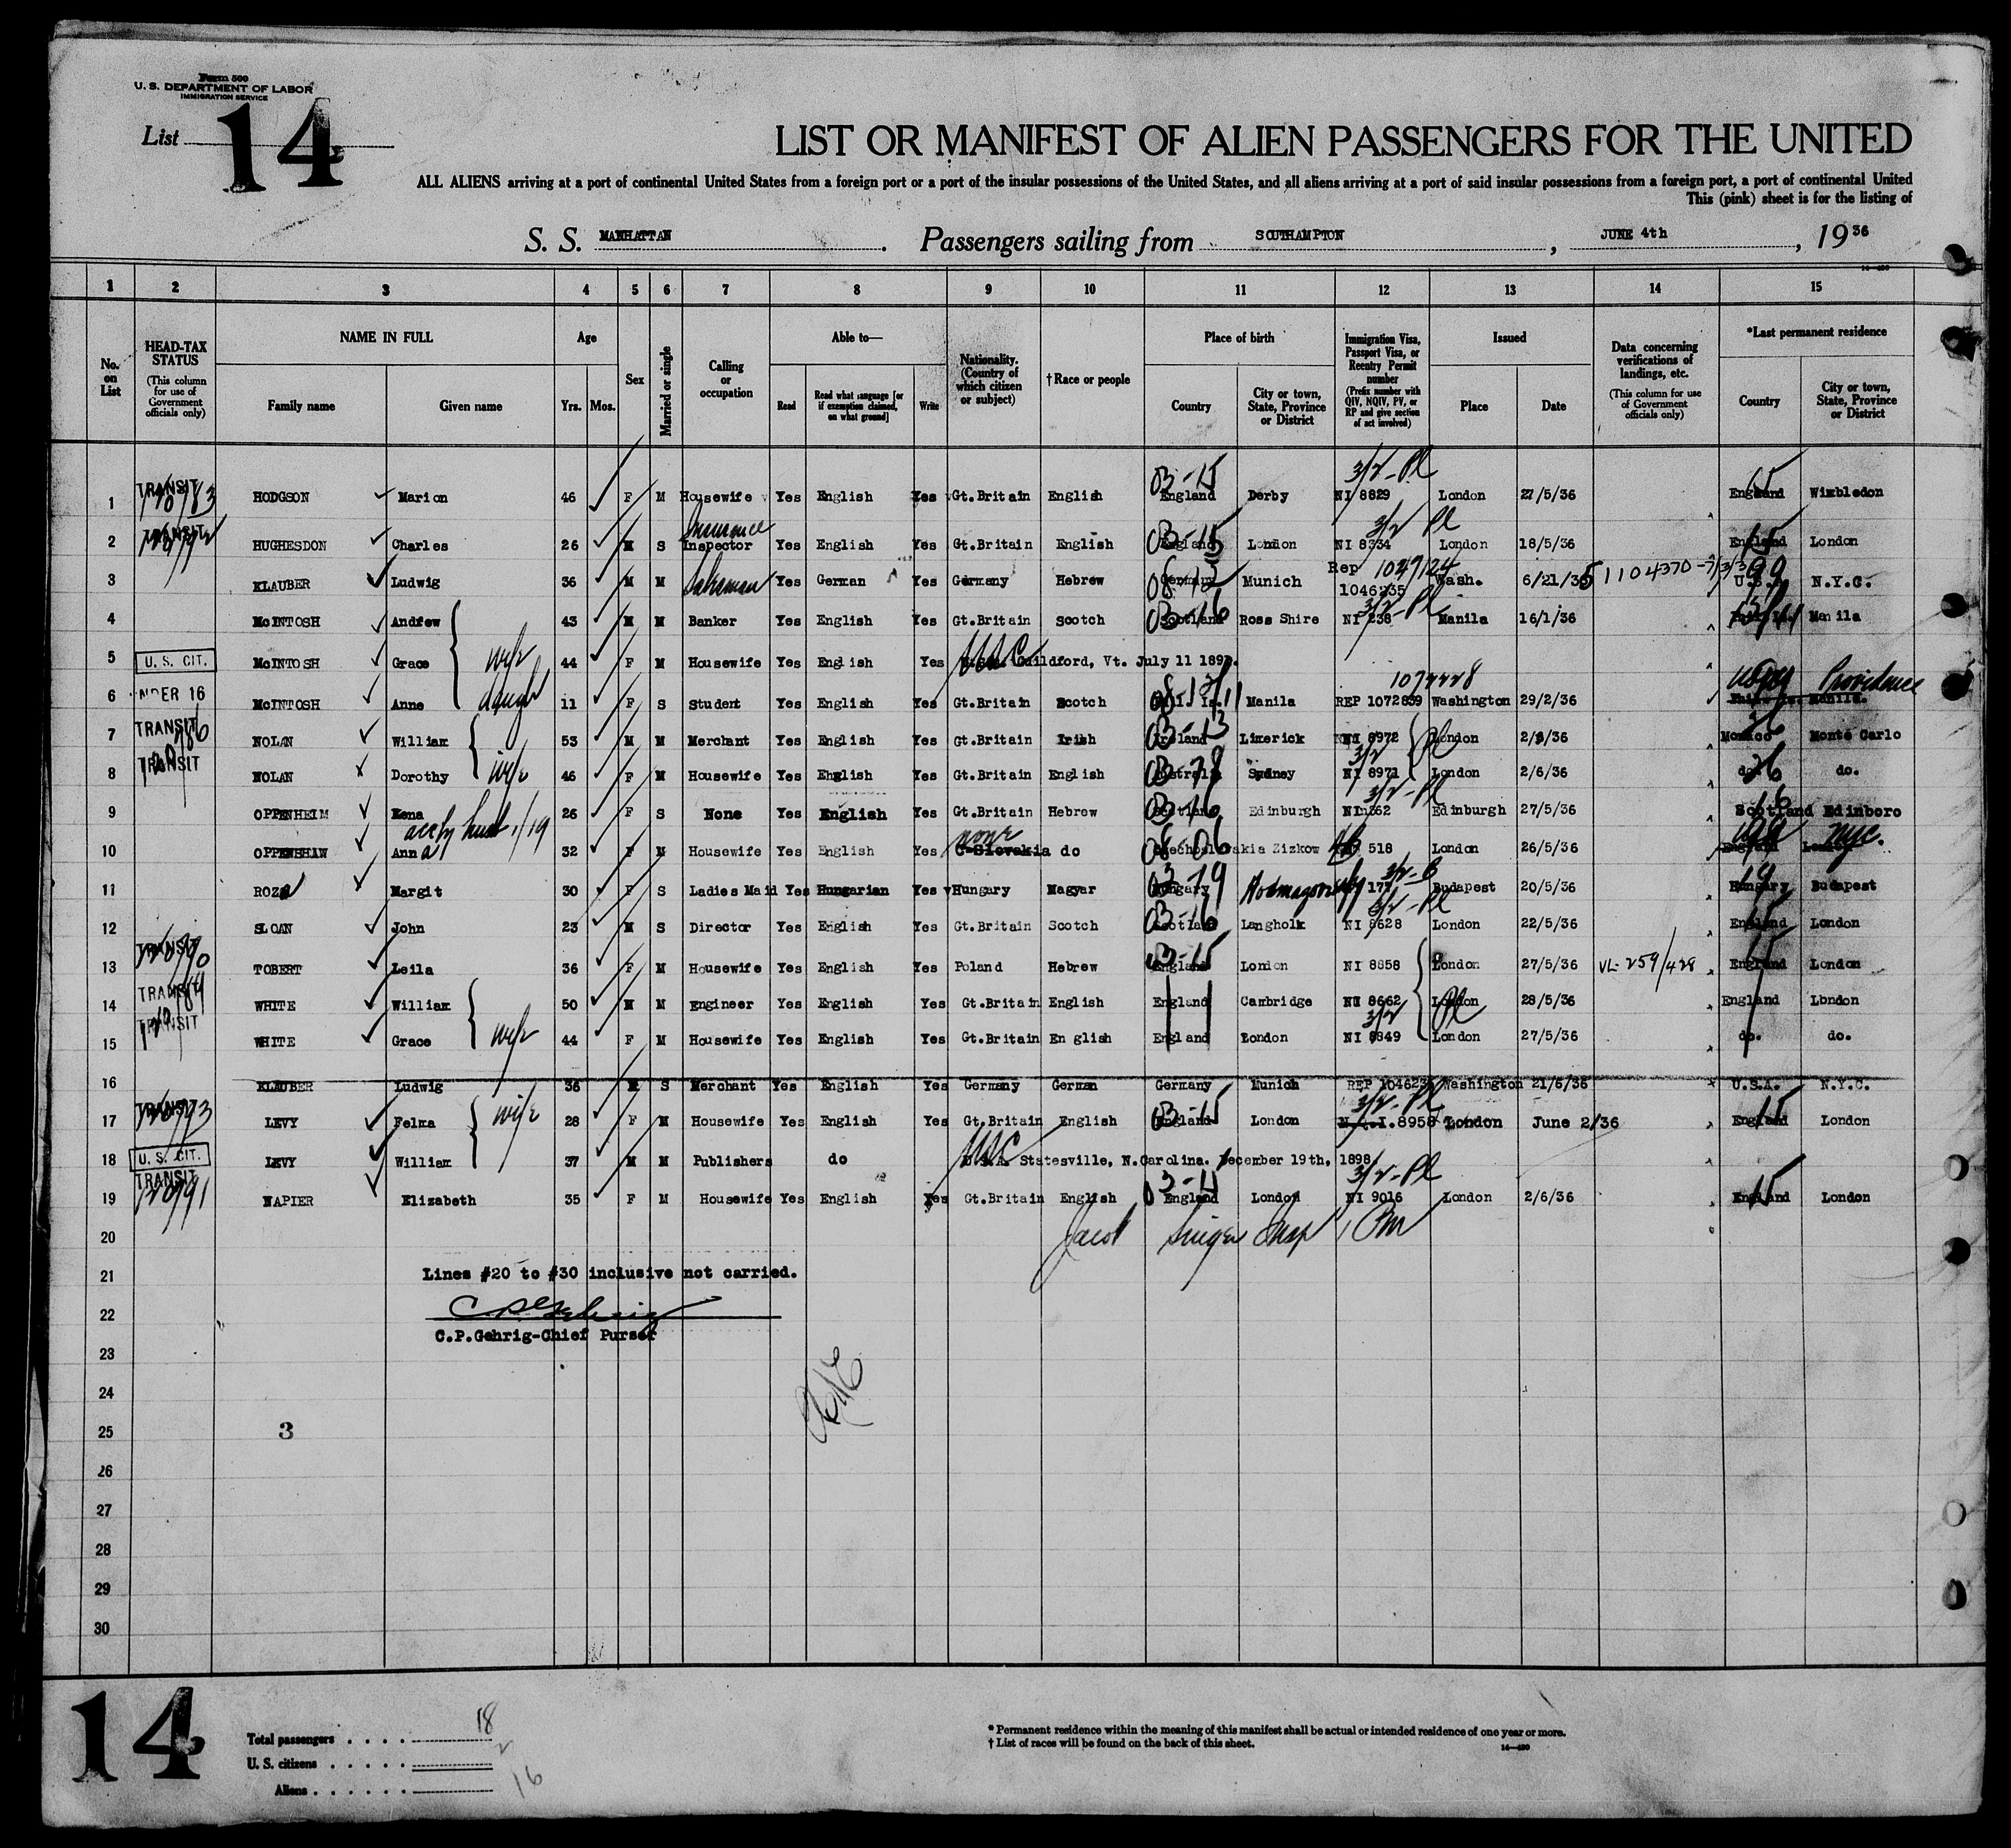 Form 500
U. S. DEPARTMENT OF LABOR
IMMIGRATION SERVICE
List 14
LIST OR MANIFEST OF ALIEN PASSENGERS FOR THE UNITED
ALL ALIENS arriving at a port of continental United States from a foreign port or a port of the insular possessions of the United States, and all aliens arriving at a port of said insular possessions from a foreign port, a port of continental United
This (pink) sheet is for the listing of
S. S. MANHATTAN . Passengers sailing from SOUTHAMPTON , JUNE 4th , 19 36
1 2 3 4 5 6 7 8 9 10 11 12 13 14 15
No. on List
HEAD-TAX STATUS (This column for use of Government officials only)
NAME IN FULL Family name Given name
Age Yrs. Mos.
Sex
Married or single
Calling or occupation
Able to— Read Read what language [or if exemption claimed, on what ground] Write
Nationality. (Country of which citizen or subject)
†Race or people
Place of birth Country City or town, State, Province or District
Immigration Visa, Passport Visa, or Reentry Permit number (Prefix number with QIV, NQIV, PV, or RP and give section of act involved)
Issued Place Date
Data concerning verifications of landings, etc. (This column for use of Government officials only)
*Last permanent residence Country City or town, State, Province or District
3/2-Pl
1 TRANSIT HODGSON Marion 46 F M Housewife Yes English Yes Gt.Britain English England Derby NI 8829 London 27/5/36 England Wimbledon
Insurance 3/2 Pl
2 TRANSIT HUGHESDON Charles 26 M S Inspector Yes English Yes Gt.Britain English England London NI 8334 London 18/5/36 England London
3 KLAUBER Ludwig 36 M M Salesman Yes German Yes Germany Hebrew Germany Munich Rep 1047124 1046235 Wash. 6/21/35 1104370 U.S.A. N.Y.C.
4 McINTOSH Andrew 43 M M Banker Yes English Yes Gt.Britain Scotch Scotland Ross Shire NI 238 Manila 16/1/36 Manila
5 U. S. CIT. McINTOSH Grace wife 44 F M Housewife Yes English Yes USC Guildford, Vt. July 11 189
1072228
6 UNDER 16 McINTOSH Anne daught 11 F S Student Yes English Yes Gt.Britain Scotch Manila REP 1072839 Washington 29/2/36 Providence Manila.
7 TRANSIT NOLAN William 53 M M Merchant Yes English Yes Gt.Britain Irish Ireland Limerick NI 8972 London 2/6/36 Monaco Monte Carlo
8 TRANSIT NOLAN Dorothy wife 46 F M Housewife Yes English Yes Gt.Britain English Australia Sydney NI 8971 London 2/6/36 do. do.
9 OPPENHEIM 26 F S None Yes English Yes Gt.Britain Hebrew Scotland Edinburgh NI 262 Edinburgh 27/5/36 Scotland Edinboro
none
10 OPPENSHAW Anna 32 F M Housewife Yes English Yes C-Slovakia do Czechoslovakia Zizkow 518 London 26/5/36 England NYC.
11 ROZSA Margit 30 F S Ladies Maid Yes Hungarian Yes Hungary Magyar Hungary 177 Budapest 20/5/36 Hungary Budapest
12 SLOAN John 23 M S Director Yes English Yes Gt.Britain Scotch Scotland Langholm NI 8628 London 22/5/36 England London
13 TRANSIT TOBERT Leila 36 F M Housewife Yes English Yes Poland Hebrew England London NI 8858 London 27/5/36 VL-259/428 England London
14 TRANSIT WHITE William 50 M M Engineer Yes English Yes Gt.Britain English England Cambridge NI 8662 London 28/5/36 England London
15 TRANSIT WHITE Grace wife 44 F M Housewife Yes English Yes Gt.Britain English England London NI 8849 London 27/5/36 do. do.
16 KLAUBER Ludwig 36 M S Merchant Yes English Yes Germany German Germany Munich REP 1046235 Washington 21/6/36 U.S.A. N.Y.C.
3/2-Pl
17 TRANSIT LEVY Felma wife 28 F M Housewife Yes English Yes Gt.Britain English England London N.I.8958 London June 2/36 England London
18 U. S. CIT. LEVY William 37 M M Publishers do USC U.S.A. Statesville, N.Carolina. December 19th, 1898
3/2-Pl
19 TRANSIT NAPIER Elizabeth 35 F M Housewife Yes English Yes Gt.Britain English England London NI 9016 London 2/6/36 England London
20 Jacob Singer Insp
21 Lines #20 to #30 inclusive not carried.
22
C.P.Gehrig-Chief Purser
23
24
25 3
26
27
28
29
30
14
Total passengers . . . . 18
U. S. citizens . . . . . 2
Aliens . . . . . . 16
* Permanent residence within the meaning of this manifest shall be actual or intended residence of one year or more.
† List of races will be found on the back of this sheet.
14—420